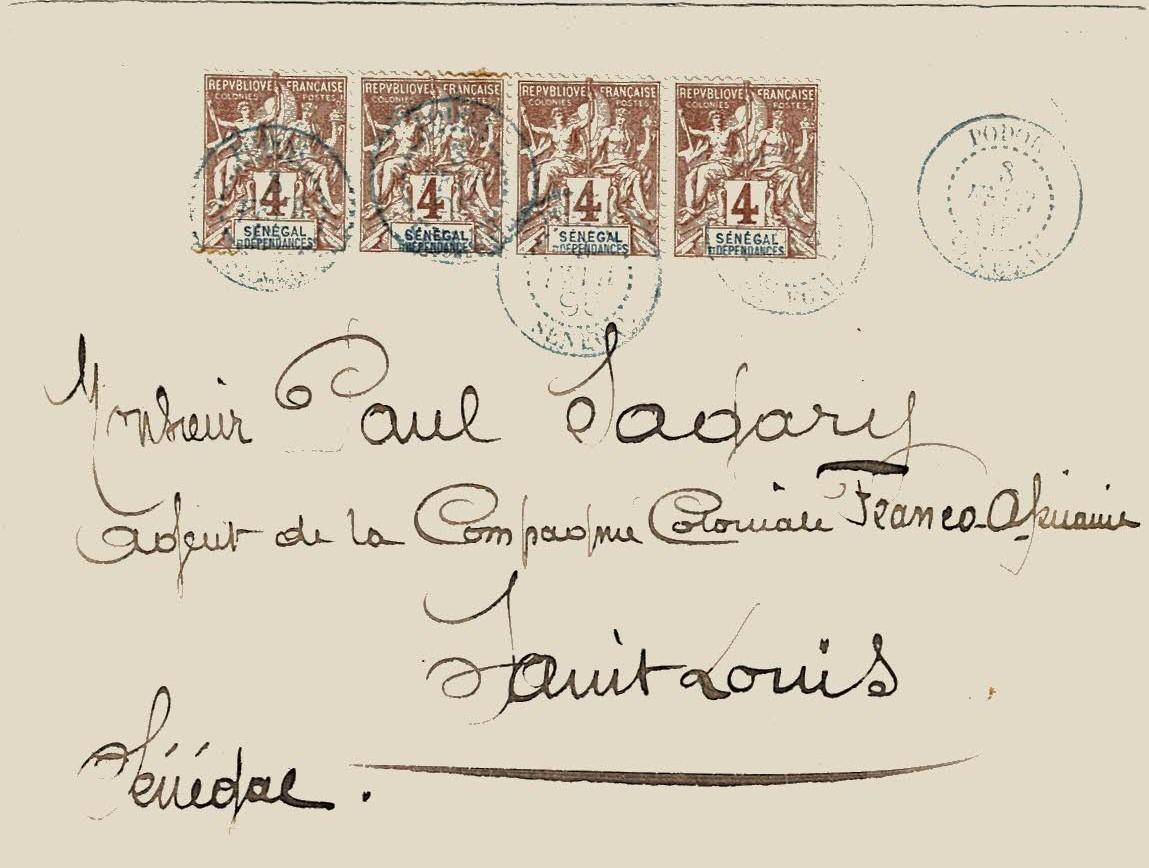 REPVBLIQVE FRANÇAISE REPVBLIQVE FRANÇAISE REPVBLIQVE FRANÇAISE REPVBLIQVE FRANÇAISE
COLONIES POSTES COLONIES POSTES COLONIES POSTES COLONIES POSTES
4 4 4 4
SÉNÉGAL SÉNÉGAL SÉNÉGAL SÉNÉGAL
ET DÉPENDANCES ET DÉPENDANCES ET DÉPENDANCES ET DÉPENDANCES
PODOR
8
SÉNÉGAL
Monsieur Paul Sagary
Agent de la Compagnie Coloniale Franco-Africaine
Saint Louis
Sénégal.